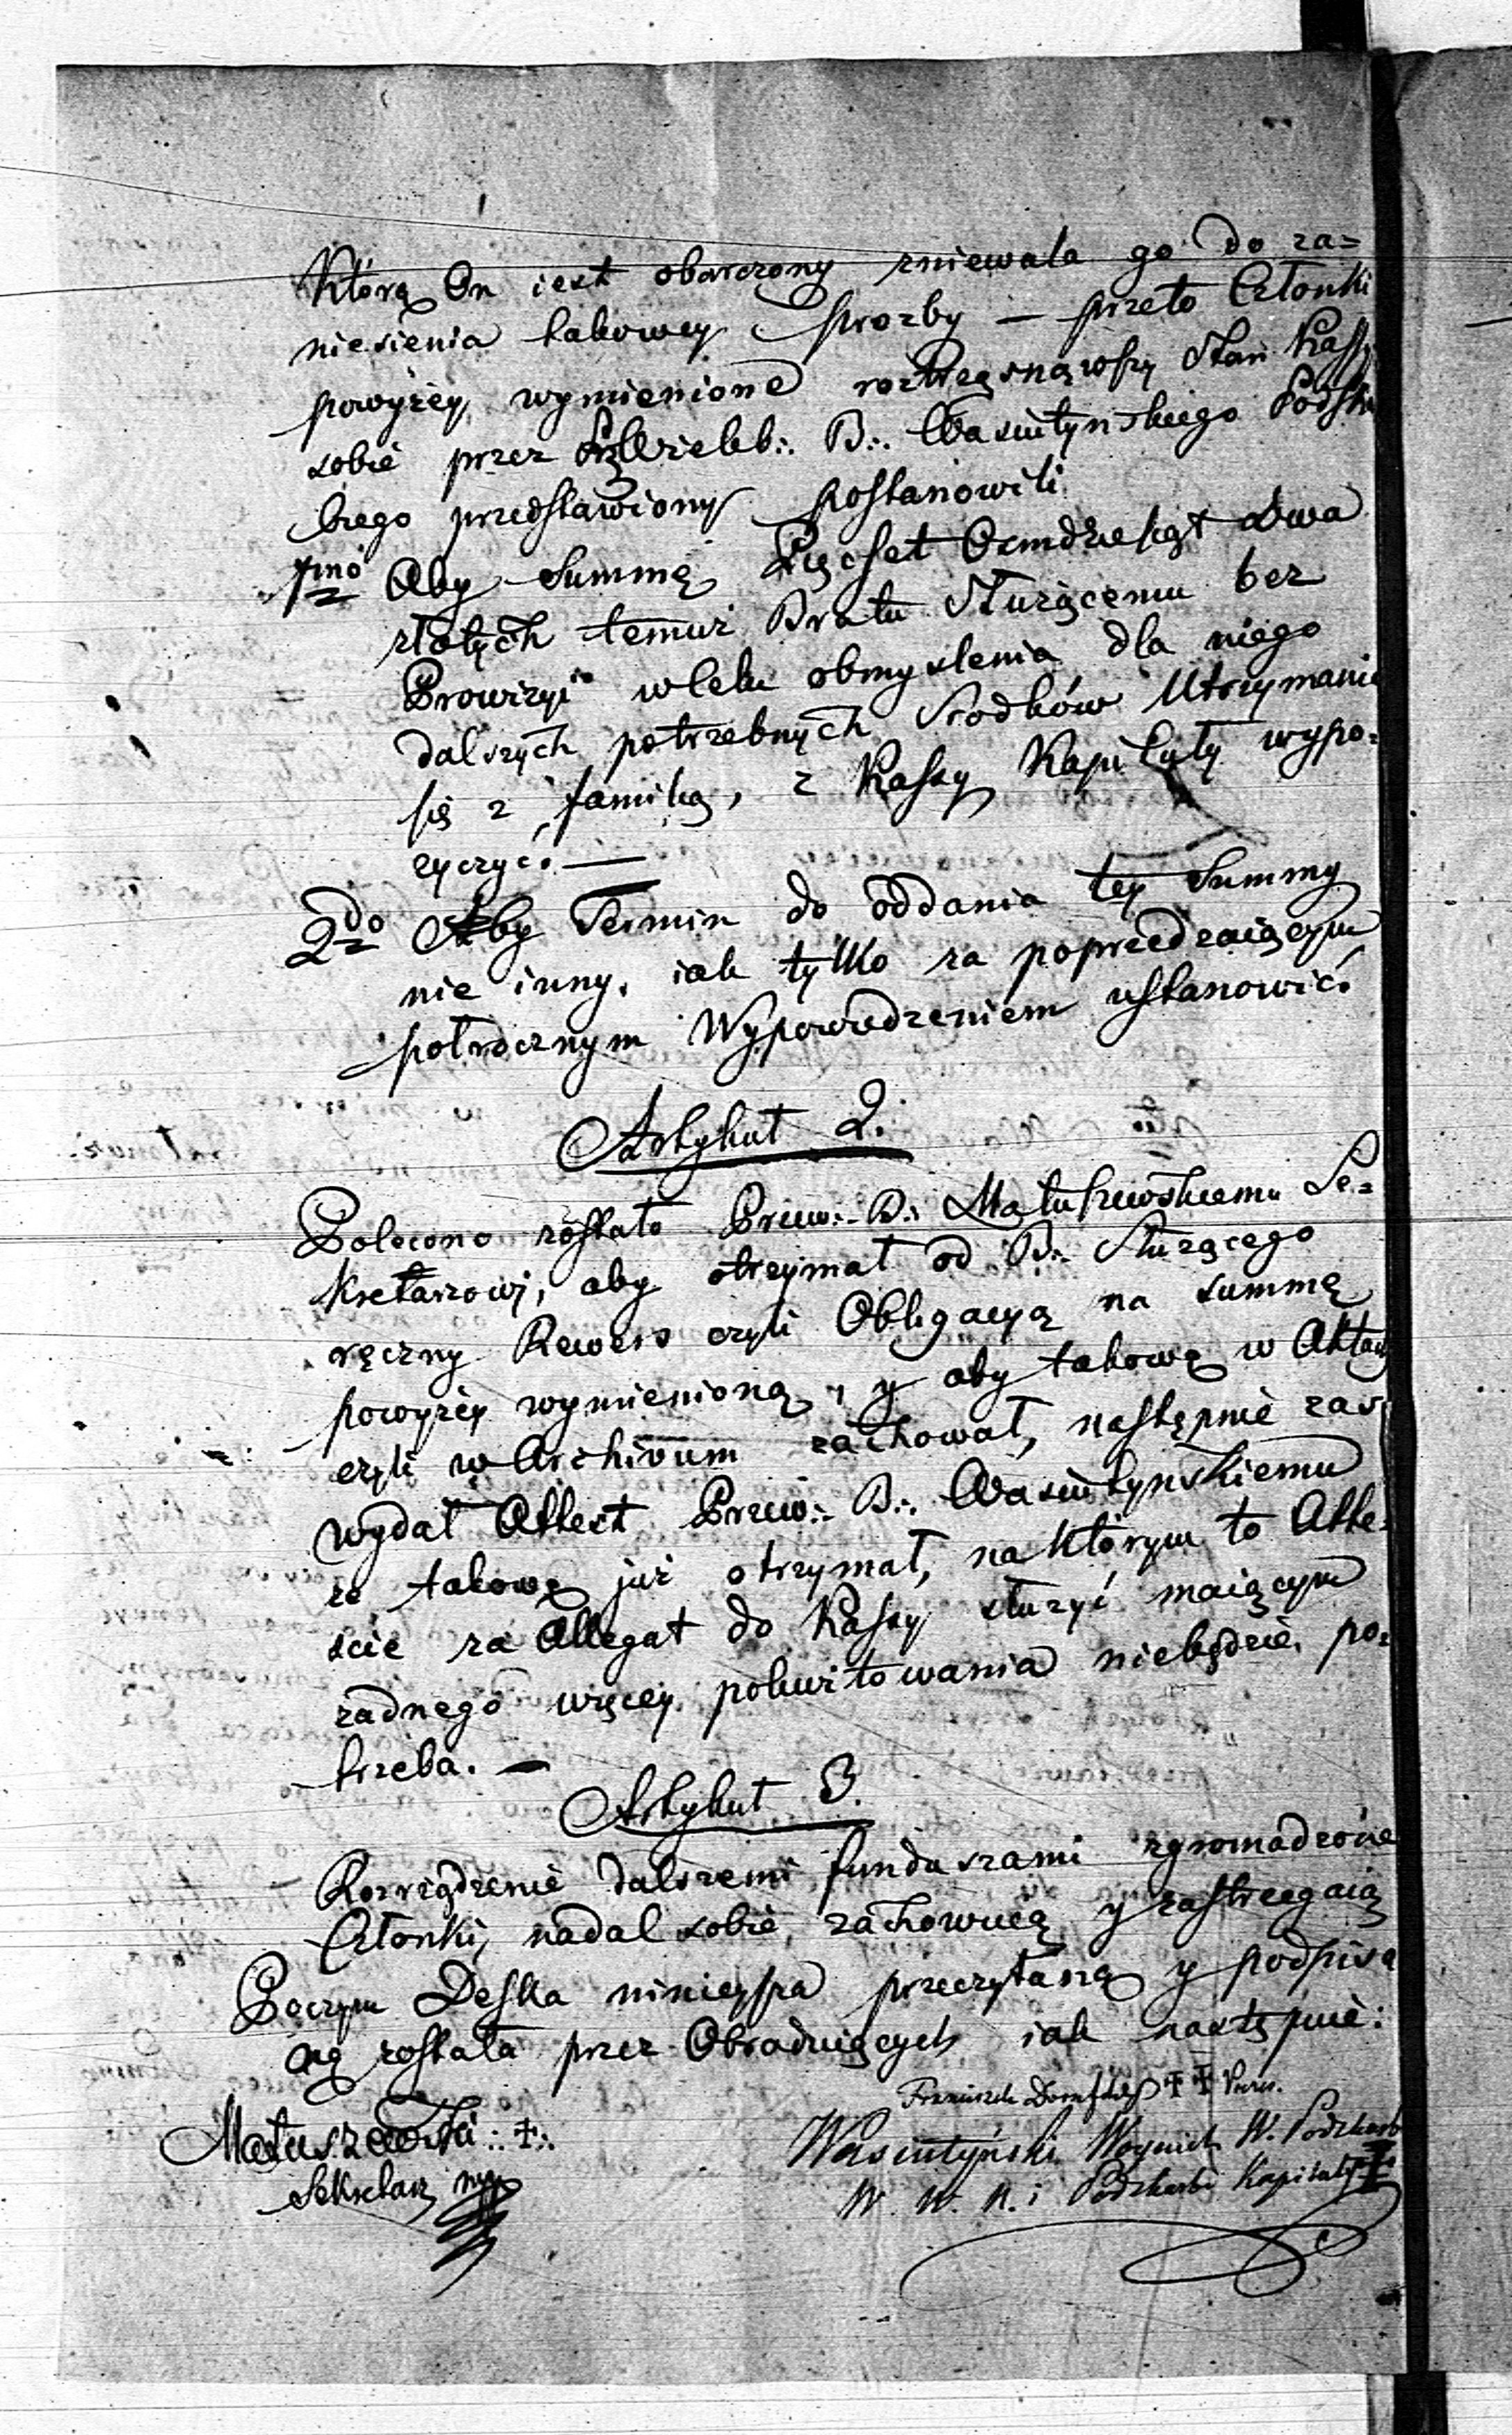 Którą On iest obarczony zniewala go do za=
niesienia takowey prozby — przeto Członki
powyżey wymienione roztrząsnąwszy Stan Kassy
sobie przez Wieleb∴ B∴ Wasiutyńskiego Podskar
biego przedstawiony postanowili
1mo Aby Summę Pięcset Osmdziesiąt dwa
złotych temuż Bratu Służącemu bez
Prowizyi w celu obmyslenia dla niego
dalszych potrzebnych Srodków Utrzymania
się z familią, z Kassy Kapituły wypo=
życzyć. —
2do Aby Termin do oddania tey Summy
nie inny, iak tylko za poprzedzaiącym
półrocznym Wypowiedzeniem ustanowić.
Artykuł 2.
Polecono zostało Przew∴ B∴ Matuszewskiemu Se=
kretarzowi, aby otrzymał od B∴ Służącego
ręczny Rewers czyli Obligacyą na summę
powyżey wymienioną, y aby takową w Aktach
czyli w Archivum zachował, następnie zas
wydał Attest Przew∴ B∴ Wasiutyńskiemu
że takowę już otrzymał, na którym to Atte=
scie za Allegat do Kassy służyć maiącym
żadnego więcey pokwitowania niebędzie po=
trzeba. —
Artykuł 3.
Rozrządzenie dalszemi funduszami zgromadzone
Członki, nadal sobie zachowuią y zastrzegaią
Poczym Deska ninieysza przeczytaną y podpisa
ną została przez Obraduiących iak następuie:
Franciszek
Matuszewski ∴ ‡ ∴
Wasiutyński Woyciech W. Podskarb
Sekretarz mp
W. W. R. i Podskarbi Kapituły